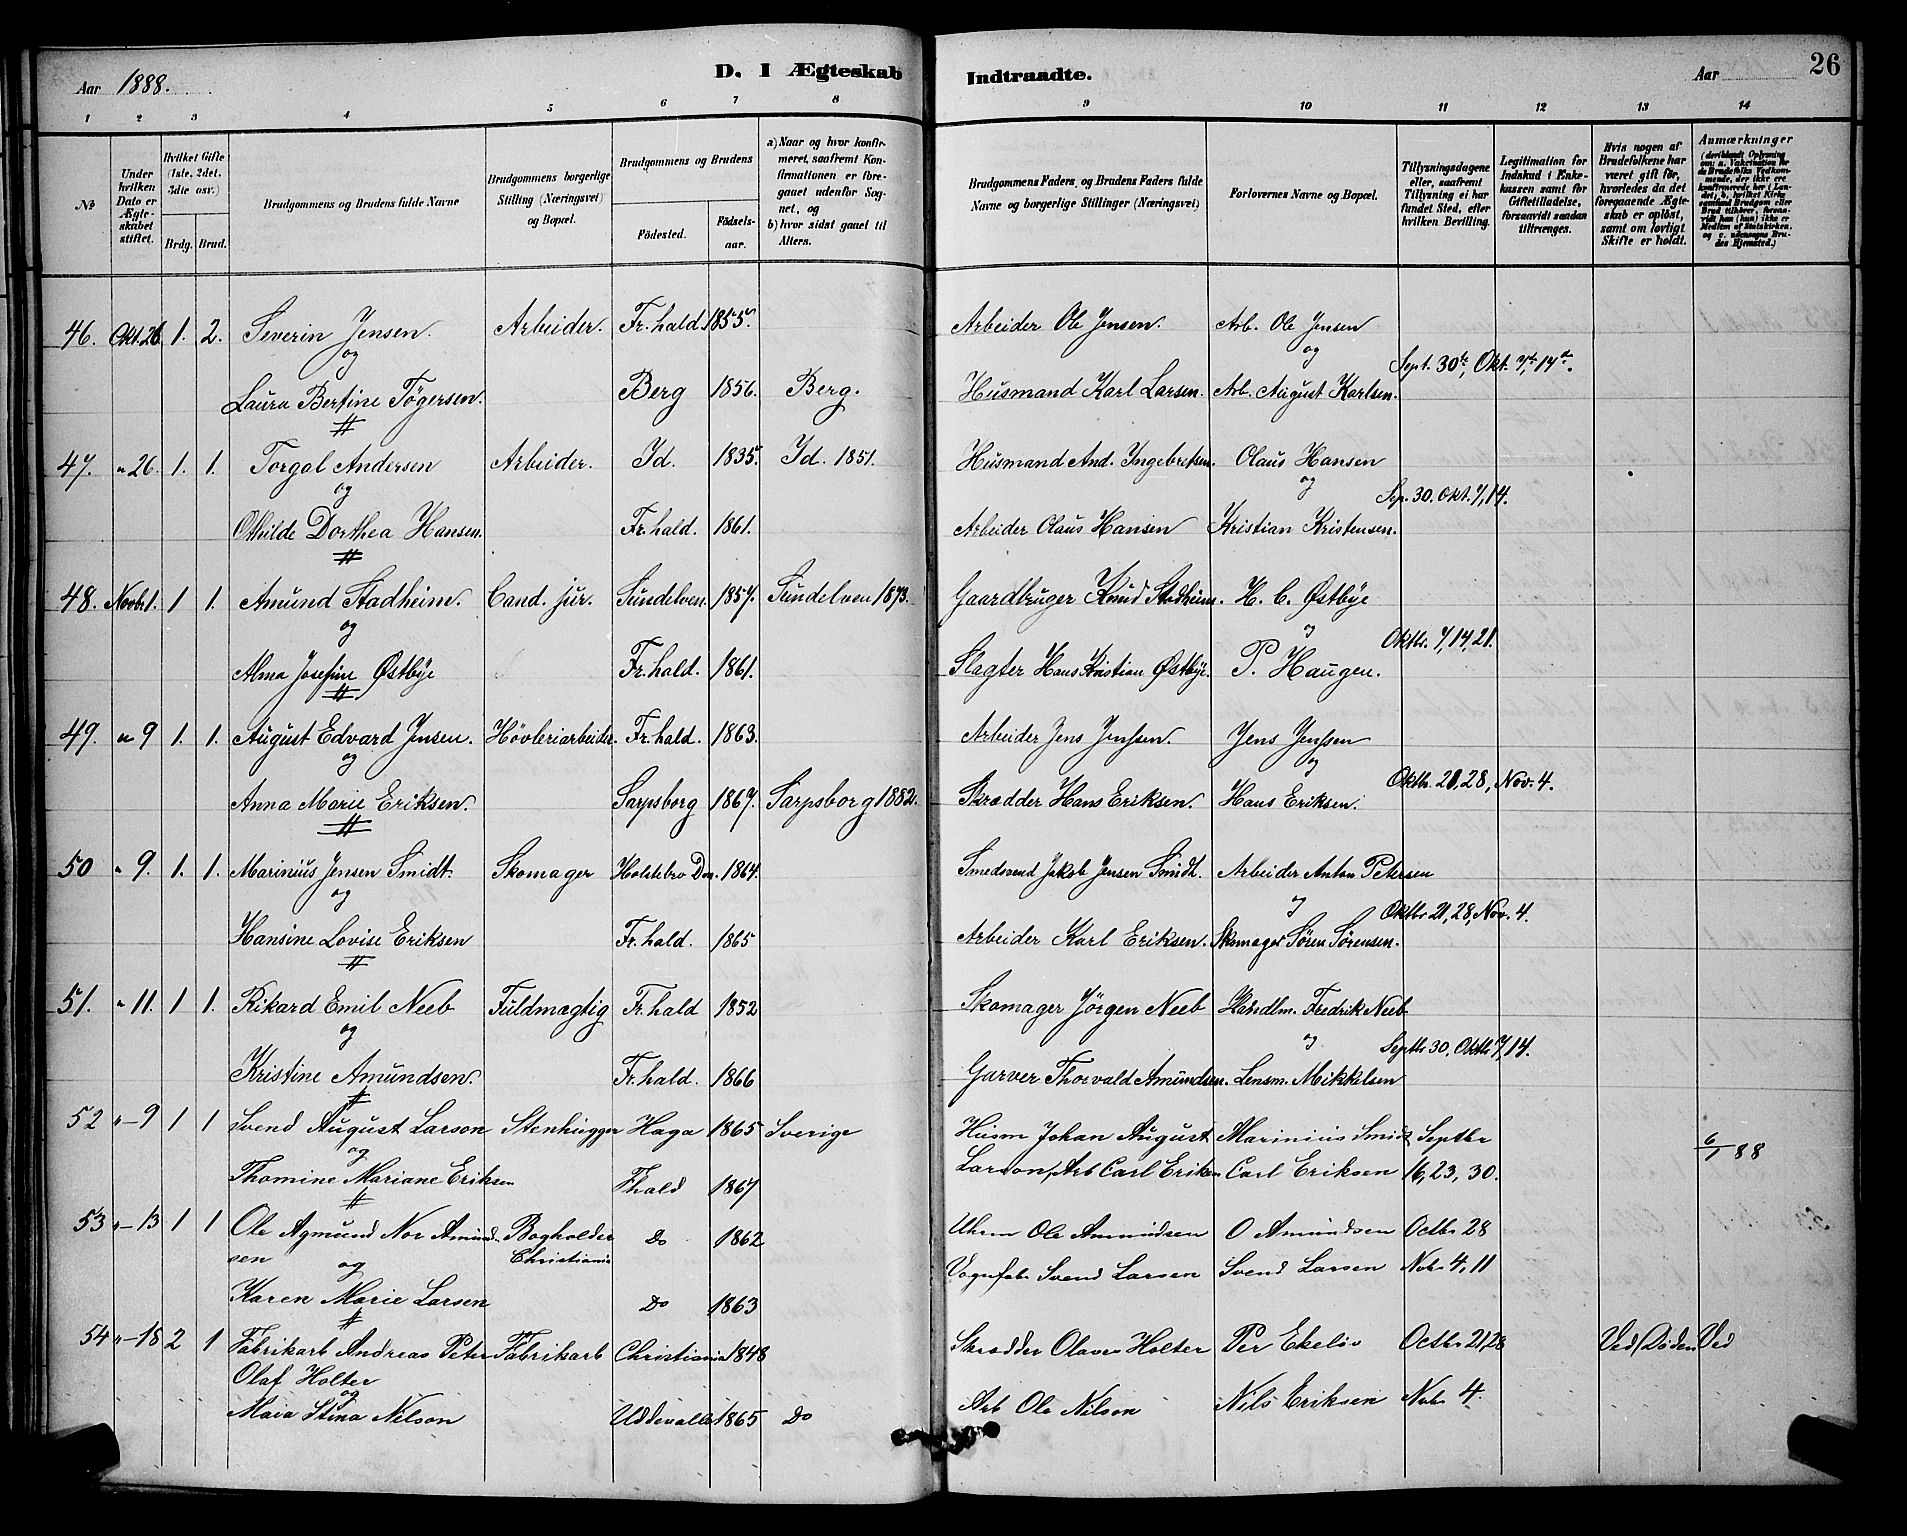 Aar 1888. D. I Ægteskab Indtraadte. Aar 26
1 2 3 4 5 6 7 8 9 10 11 12 13 14
No
Under hvilken Dato er Ægteskabet stiftet.
Hvilket Gifte (1ste, 2det, 3die osv.)
Brdg. Brud.
Brudgommens og Brudens fulde Navne
Brudgommens borgerlige Stilling (Næringsvei) og Bopæl.
Brudgommens og Brudens
Födested. Födselsaar.
a) Naar og hvor konfirmeret, saafremt Konfirmationen er foregaaet udenfor Sognet, og
b) hvor sidst gaaet til Alters.
Brudgommens Faders, og Brudens Faders fulde Navne og borgerlige Stillinger (Næringsvei)
Forlovernes Navne og Bopæl.
Tillysningsdagene eller, saafremt Tillysning ei har fundet Sted, efter hvilken Bevilling.
Legitimation for Indskud i Enkekassen samt for Giftetilladelse, forsaavidt saadan tiltrænges.
Hvis nogen af Brudefolkene har været gift før, hvorledes da det foregaaende Ægteskab er opløst, samt om lovligt Skifte er holdt.
Anmærkninger (deriblandt Oplysning om: a. Vakcination for de Brudefolks Vedkommende, der ikke ere konfirmerede her i Landet; b. hvilket Kirkesamfund Brudgom eller Brud tilhører, forsavidt han (hun) ikke er Medlem af Statskirken, og c. udensogns Brudes Hjemsted.)
46. Okt. 26 1. 2. Severin Jensen. Arbeider. Fr.hald 1855. Arbeider Ole Jensen. Arb. Ole Jensen
og og Sept. 30te, Okt. 7de 14de.
Laura Bertine Tögersen. Berg 1856. Berg. Husmand Karl Larsen. Arb. August Karlsen.
47. " 26. 1. 1. Torgal Andersen Arbeider. Id. 1835. Id. 1851. Husmand And. Ingebretsen. Olaus Hansen
og og Sep. 30. Okt. 7, 14.
Othilde Dorthea Hansen. Fr.hald. 1861. Arbeider Olaus Hansen Kristian Kristensen.
48. Novbr 1. 1 1. Amund Stadheim. Cand. jur. Sundelven. 1857. Sundelven 1873. Gaardbruger Knud Stadheim. H. C. Østbye
og og Oktbr. 7, 14, 21.
Alma Josefine Østbye Fr.hald. 1861. Slagter Hans Kristian Østbye. P. Haugen.
49. " 9 1. 1. August Edvard Jensen. Hövleriarbeider. Fr.hald. 1863. Arbeider Jens Jenssen. Jens Jenssen
og og Oktbr. 21, 28, Nov. 4.
Anna Marie Eriksen. Sarpsborg 1867. Sarpsborg 1882. Skrædder Hans Eriksen. Hans Eriksen.
50 " 9. 1. 1. Marinius Jensen Smidt. Skomager Holstebro Dan. 1864. Smedsvend Jakob Jensen Smidt. Arbeider Anton Petersen
og og Oktbr 21, 28, Nov. 4.
Hansine Lovise Eriksen Fr.hald. 1865 Arbeider Karl Eriksen. Skomager Sören Sörensen.
51. " 11. 1 1. Rikard Emil Neeb Fuldmægtig Fr.hald 1852 Skomager Jörgen Neeb Handlm. Fredrik Neeb
og og Septbr 30, Oktbr 7, 14.
Kristine Amundsen. Fr.hald. 1866 Garver Thorvald Amundsen. Lensm. Mikkelsen
52 " - 9 1 1 Svend August Larson Stenhugger Haga 1865 Sverige Husm Johan August Marinius Smidt Septbr 6/1 88
og Larson, Arb Carl Eriksen Carl Eriksen 16, 23, 30.
Thomine Mariane Eriksen Fhald 1867
53 " - 13 1 1 Ole Agmund Nor Amund- Bogholder Do 1862 Uhrm Ole Amundsen O Amundsen Octbr 28
sen og Christiania Vognfab Svend Larsen Svend Larsen Nvbr 4, 11
Karen Marie Larsen Do 1863
54 " - 18 2 1 Fabrikarb Andreas Peter Fabrikarb Christiania 1848 Skrædder Olaves Holter Per Ekelöv Octbr 21, 28 Ved Döden Ved
Olaf Holter
og
Maia Stina Nilson Uddevalla 1865 Do Arb Ole Nilson Nils Eriksen Nvbr 4.